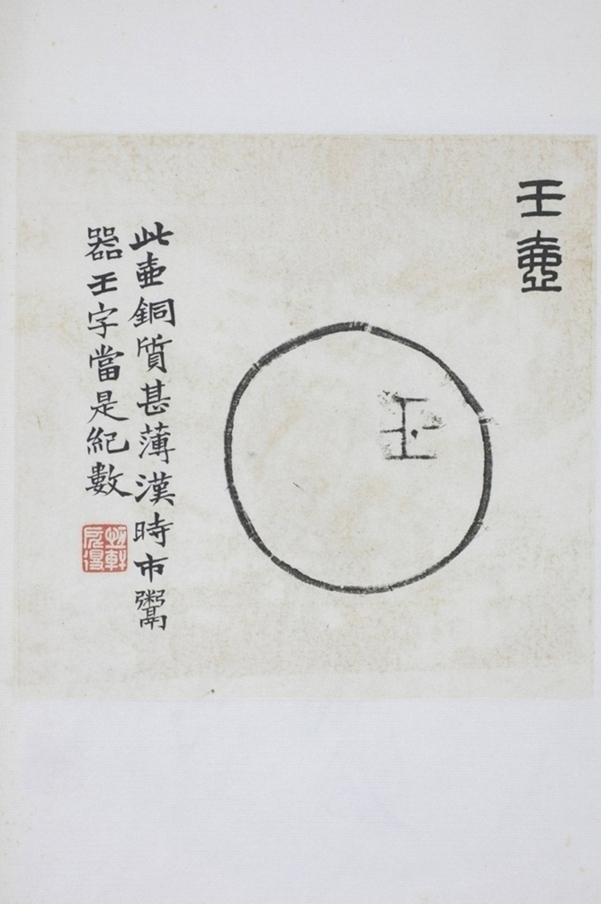 壬壺
壬
此壺銅質甚薄漢時市鬻
器壬字當是紀數